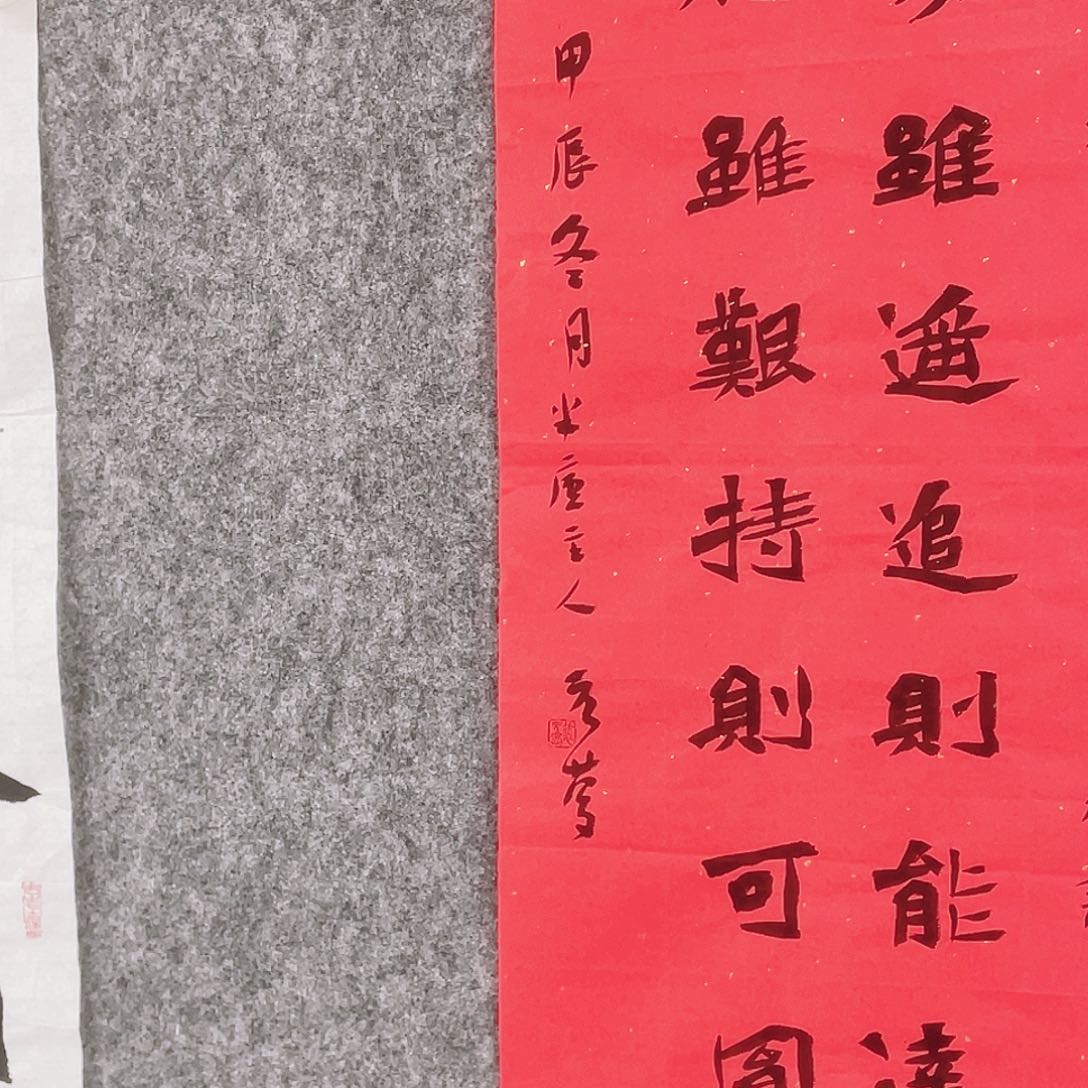 雖遥追則能達
雖艱持則可圓
甲辰冬月米主人